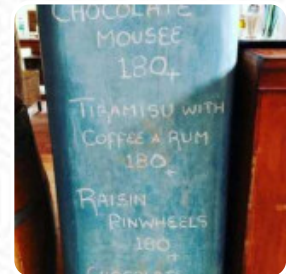 CHOCOLATE
MOUSEE
180
TIRAMISU WITH
COFFEE & RUM
180
RAISIN
PINWHEELS
180
CHOCOLATE